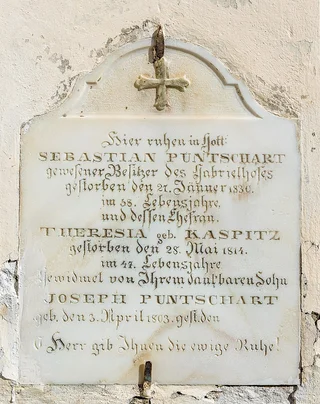 Hier ruhen in Gott:
SEBASTIAN PUNTSCHART
gewesener Besitzer des Gabrielhofes
gestorben den 27. Jänner 1830.
im 58. Lebensjahre.
und dessen Ehefrau.
THERESIA geb. KASPITZ
gestorben den 28. Mai 1814.
im 47. Lebensjahre
Gewidmet von Ihrem dankbaren Sohn
JOSEPH PUNTSCHART
geb. den 3. April 1803. gest. den
O Herr gib Ihnen die ewige Ruhe!